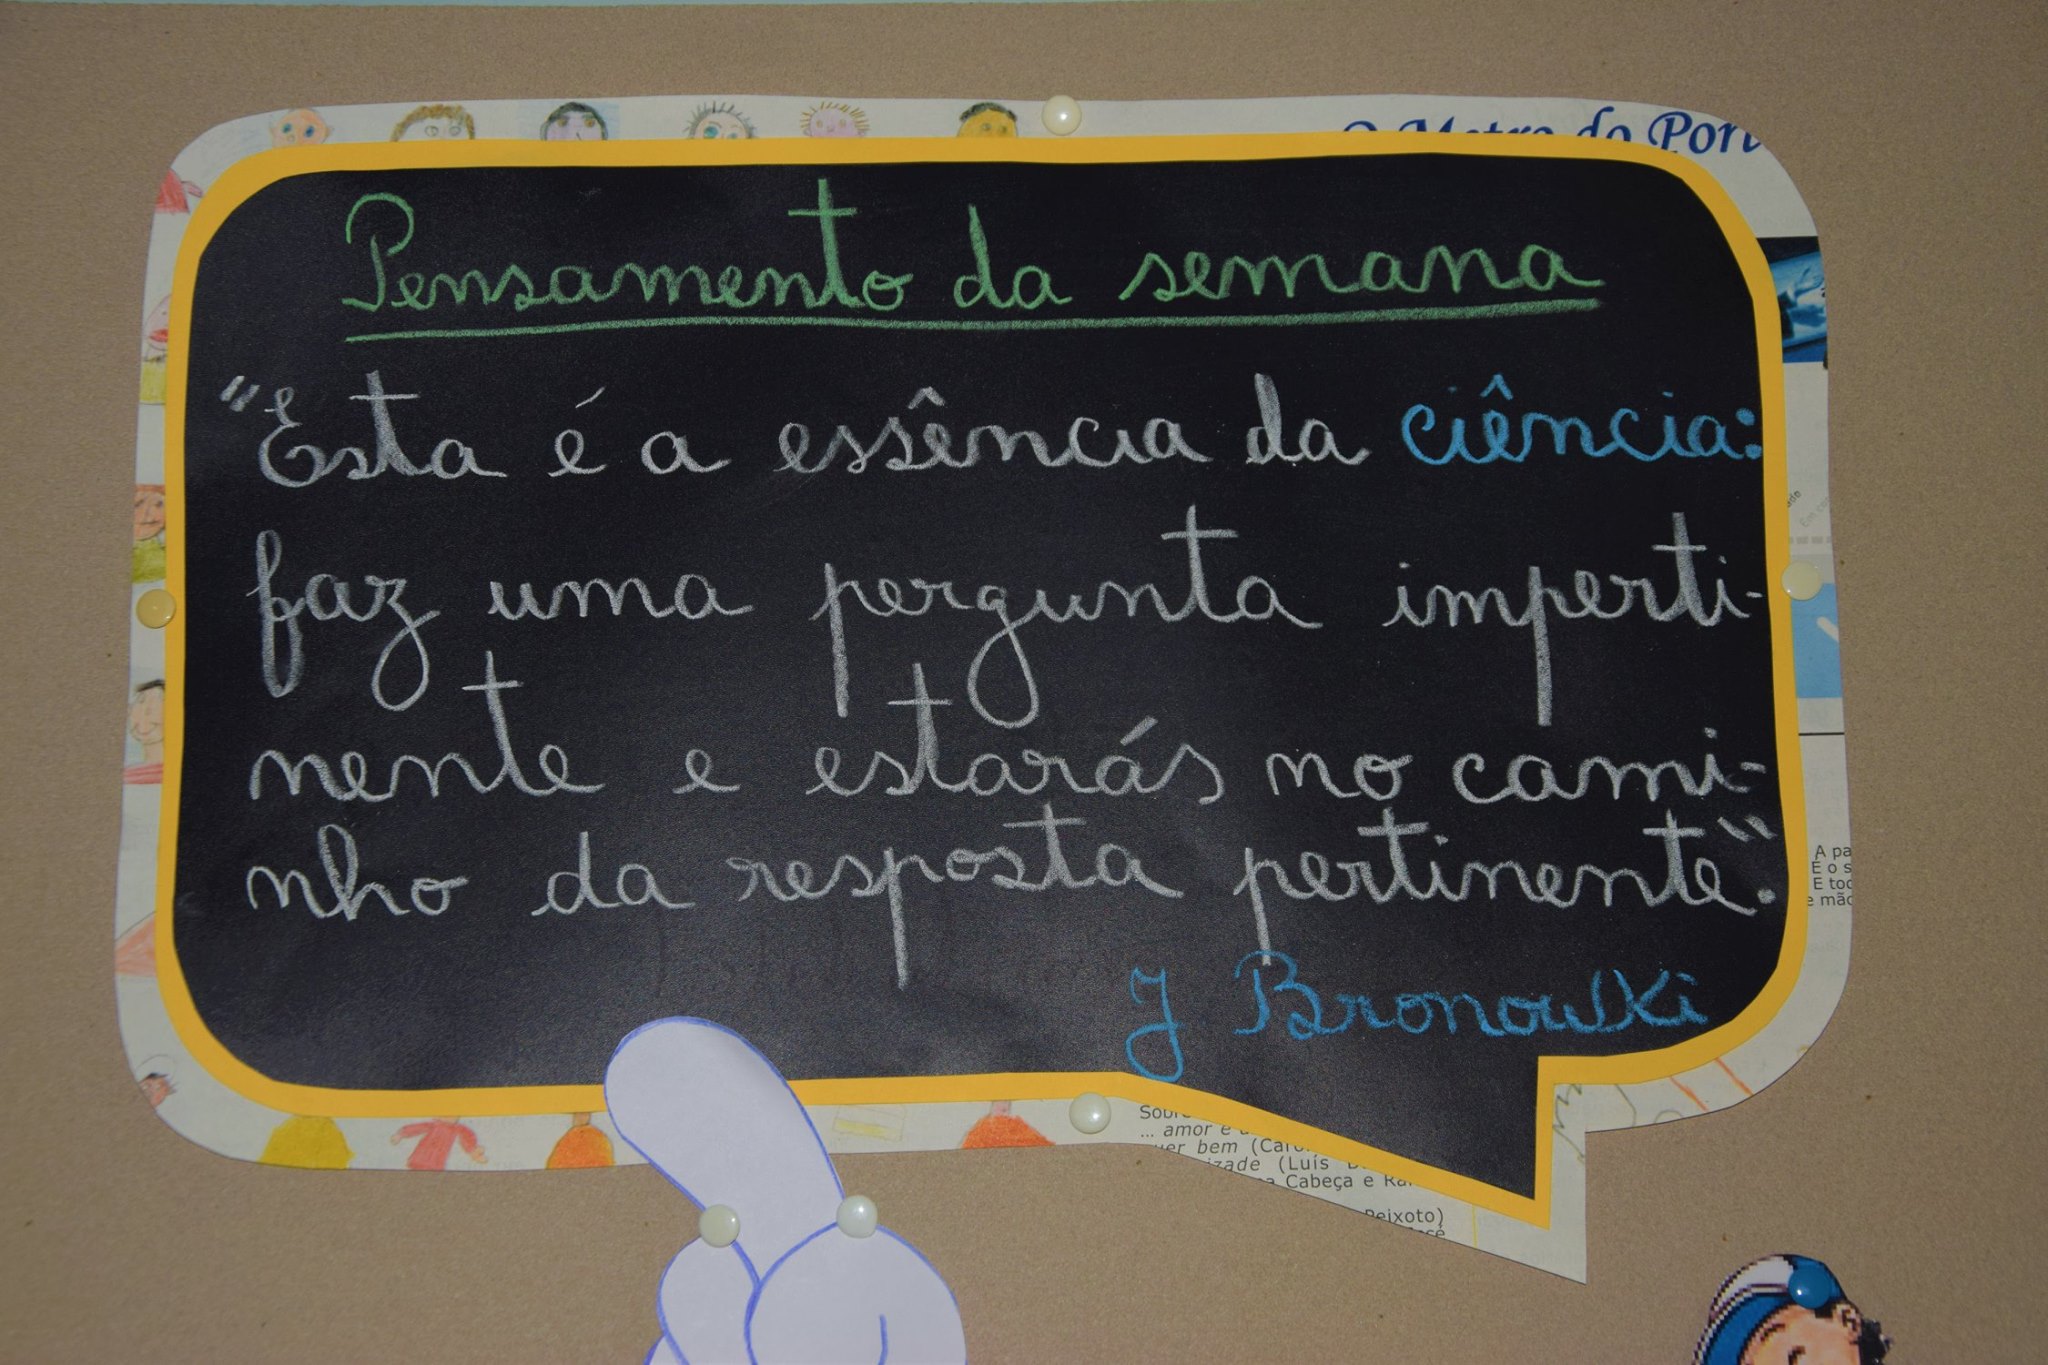 Pensamento da semana
"Esta é a essência da ciência:
faz uma pergunta imperti-
nente e estarás no cami-
nho da resposta pertinente".
J Bronowski
O Metro do Port
A pa
E o s
E toc
e mão
Sobre
... amor e
quer bem (Caro
izade (Luís
a Cabeça e Ra
Peixoto)